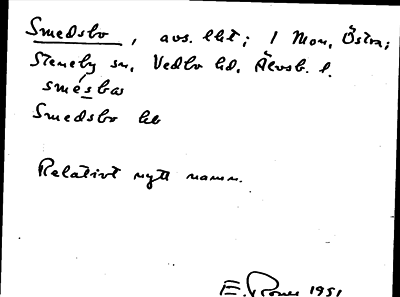 Smedsbo, avs. lht; 1 Mon, Östra;
Steneby sn, Vedbo hd, Älvsb. l.
smésbω
Smedsbo hb
Relativt nytt namn.
E. 1951